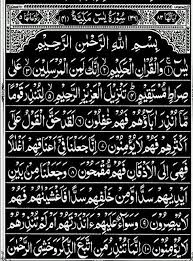 سُوْرَةُ يٰسٓ مَكِّيَّةٌ
بِسْمِ اللّٰهِ الرَّحْمٰنِ الرَّحِيْمِ
يٰسٓ ۚ وَالْقُرْاٰنِ الْحَكِيْمِ ۙ اِنَّكَ لَمِنَ الْمُرْسَلِيْنَ ۙ عَلٰى
صِرَاطٍ مُّسْتَقِيْمٍ ۭ تَنْزِيْلَ الْعَزِيْزِ الرَّحِيْمِ ۙ لِتُنْذِرَ قَوْمًا
مَّآ اُنْذِرَ اٰبَآؤُهُمْ فَهُمْ غٰفِلُوْنَ لَقَدْ حَقَّ الْقَوْلُ عَلٰٓى
اَكْثَرِهِمْ فَهُمْ لَا يُؤْمِنُوْنَ اِنَّا جَعَلْنَا فِيْٓ اَعْنَاقِهِمْ اَغْلٰلًا
فَهِيَ اِلَى الْاَذْقَانِ فَهُمْ مُّقْمَحُوْنَ وَجَعَلْنَا مِنْۢ بَيْنِ
اَيْدِيْهِمْ سَدًّا وَّمِنْ خَلْفِهِمْ سَدًّا فَاَغْشَيْنٰهُمْ فَهُمْ
لَا يُبْصِرُوْنَ ۹ وَسَوَآءٌ عَلَيْهِمْ ءَاَنْذَرْتَهُمْ اَمْ لَمْ تُنْذِرْهُمْ
لَا يُؤْمِنُوْنَ ۱۰ اِنَّمَا تُنْذِرُ مَنِ اتَّبَعَ الذِّكْرَ وَخَشِيَ الرَّحْمٰنَ